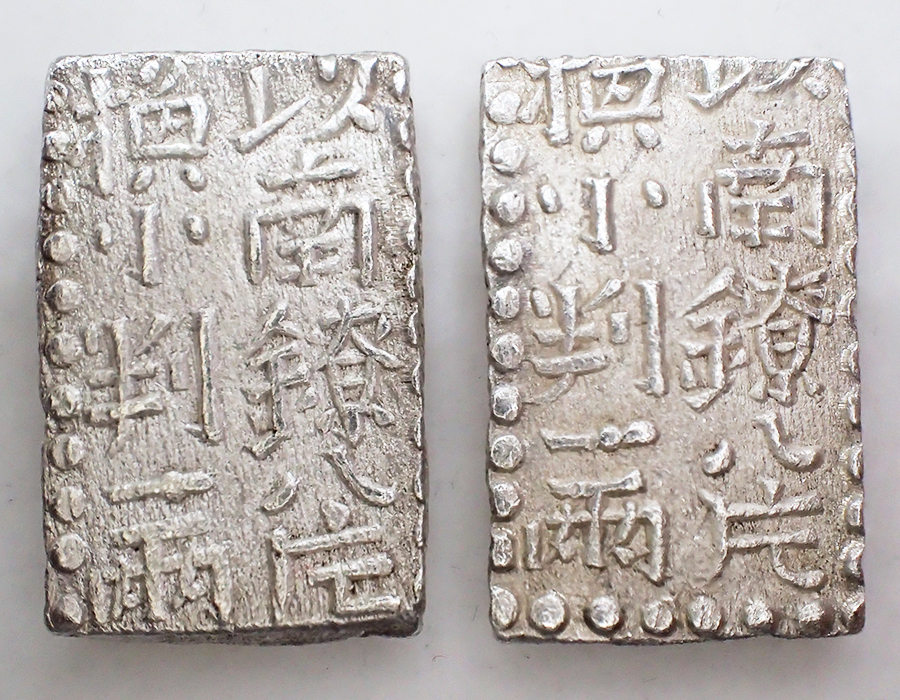 以南鐐八片
換小判一兩
以南鐐八片
換小判一兩